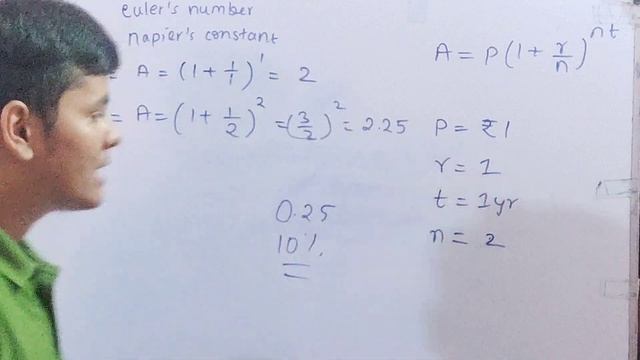 euler's number
napier's constant
= A = (1 + 1/1)^1 = 2
= A = (1 + 1/2)^2 = (3/2)^2 = 2.25
0.25
10%.
A = P(1 + r/n)^nt
P = ₹1
r = 1
t = 1yr
n = 2